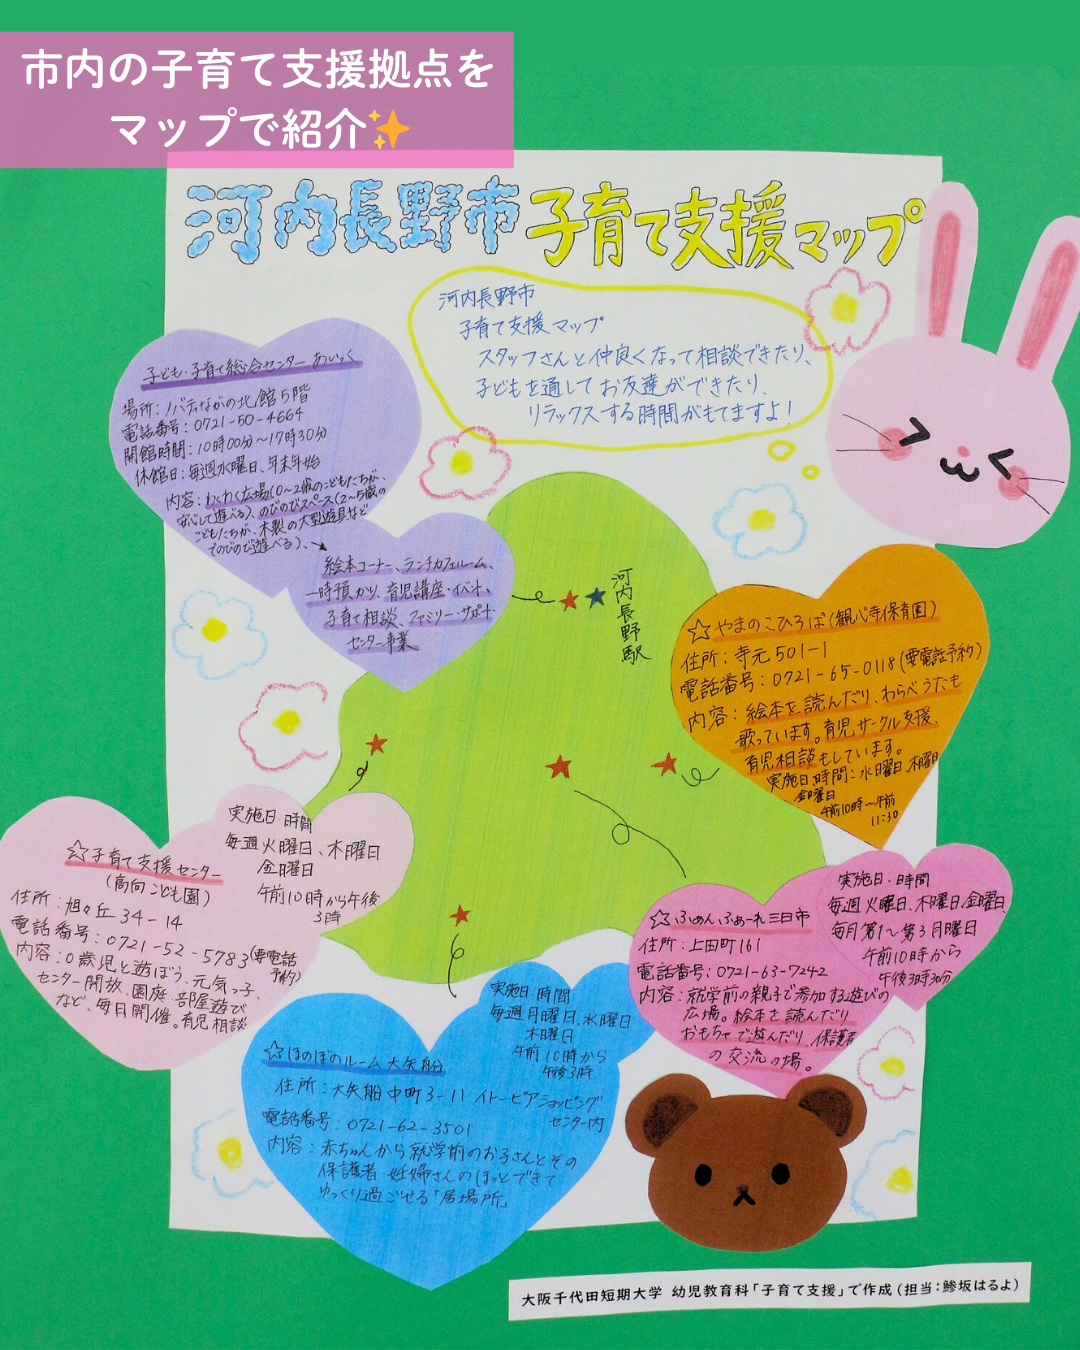 市内の子育て支援拠点を
マップで紹介✨
河内長野市子育て支援マップ
河内長野市
子育て支援マップ
スタッフさんと仲良くなって相談できたり、
子どもを通してお友達ができたり、
リラックスする時間がもてますよ!
子ども・子育て総合センター あいっく
場所:ノバティながの北館5階
電話番号:0721-50-4664
開館時間:10時00分〜17時30分
休館日:毎週水曜日、年末年始
内容:わくわく広場(0〜2歳のこどもたちが、
安心して遊べる)、のびのびスペース(2〜5歳の
こどもたちが、木製の大型遊具など
でのびのび遊べる)、
絵本コーナー、ランチカフェルーム、
一時預かり、育児講座・イベント、
子育て相談、ファミリー・サポート・
センター事業
河内長野駅
☆やまのこひろば(観心寺保育園)
住所:寺元501-1
電話番号:0721-65-0118(要電話予約)
内容:絵本を読んだり、わらべうたも
歌っています。育児サークル支援、
育児相談もしています。
実施日、時間:水曜日、木曜日
金曜日
午前10時〜午前
11:30
実施日 時間
毎週火曜日、木曜日
金曜日
午前10時から午後
3時
☆子育て支援センター
(高向こども園)
住所:旭ヶ丘34-14
電話番号:0721-52-5783(要電話
予約)
内容:0歳児と遊ぼう、元気っ子、
センター開放、園庭、部屋遊び
など、毎日開催。育児相談
実施日・時間
毎週火曜日、木曜日、金曜日、
毎月第1〜第3月曜日
午前10時から
午後3時30分
☆ふぁん・ふぁーれ三日市
住所:上田町161
電話番号:0721-63-7242
内容:就学前の親子で参加する遊びの
広場。絵本を読んだり
おもちゃで遊んだり、保護者
の交流の場。
実施日 時間
毎週月曜日、水曜日
木曜日
午前10時から
午後3時
☆ほのぼのルーム大矢船
住所:大矢船中町3-11 イトーピアショッピング
センター内
電話番号:0721-62-3501
内容:赤ちゃんから就学前のお子さんとその
保護者・妊婦さんのほっとできて
ゆっくり過ごせる「居場所」
大阪千代田短期大学 幼児教育科「子育て支援」で作成(担当:鯵坂はるよ)